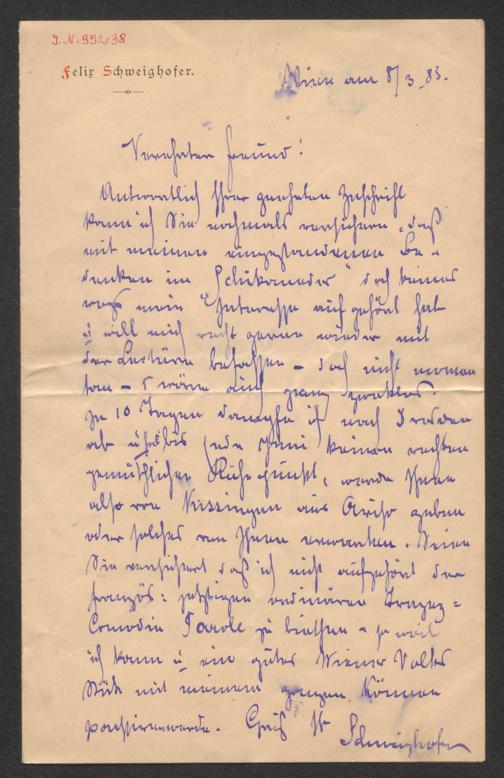 J.N. 992/38
Felix Schweighofer.
Wien am 8/3_83.
Verehrter Freund!
Antwortlich Ihrer geehrten Zuschrift
kann ich Sie nochmals versichern, daß
mit meinen eingestandenen Be-
denken im Schikaneder doch keines
wegs mein Interesse aufgehört hat
u will mich recht gerne wieder mit
der Lectüre befassen – doch nicht momen
tan – s wäre auch ganz zwecklos.
In 10 Tagen dampfe ich nach Dresden
ab u bis Ende Juni keinen rechten
gemüthlichen Ruhepunkt, werde Ihnen
also von Kissingen aus Aviso geben
oder solches von Ihnen erwarten. Seien
Sie versichert daß ich nicht aufgehört der
französ: jetzigen ordinären Trapez-
Comödie Parole zu bieten – so weil
ich kann u ein gutes Wiener Volks
Stück mit meinem ganzen Können
poussiren werde. Gruß Ihr
Schweighofer